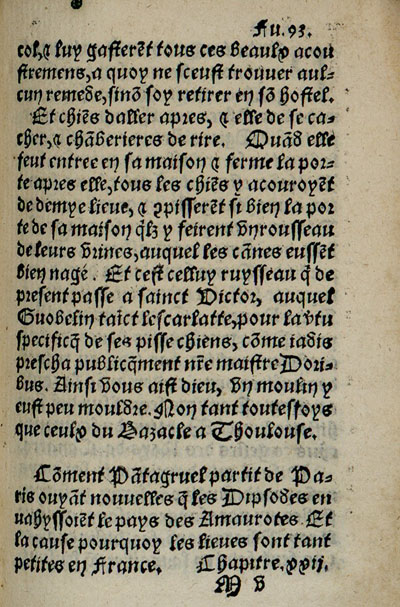 Fu.93.
col, ⁊ luy gasterẽt tous ces beaulx acou
stremens, a quoy ne sceust trouver aul-
cun remede, sinõ soy retirer en sõ hostel.
Et chiẽs daller apres, ⁊ elle de se ca-
cher, ⁊ chãberieres de rire. Quãd elle
feut entree en sa maison ⁊ ferme la por-
te apres elle, tous les chiẽs y acouroyẽt
de demye lieue, ⁊ cpisserẽt si bien la por
te de sa maison qlz y feirent vng rousseau
de leurs vrines, auquel les cãnes eussẽt
bien nagé. Et cest celluy ruysseau q̃ de
present passe a sainct Victor, auquel
Guobelin taĩct lescarlatte, pour la vtu
specificq̃ de ses pisse chiens, cõme iadis
prescha publicq̃ment nr̃e maistre Dori-
bus. Ainsi vous aist dieu, vñ moulin y
eust peu mouldre. Non tant toutesfoys
que ceulx du Bazacle a Thoulouse.
Cõment Pãtagruel partit de Pa-
ris ouyãt nouvelles q̃ les Dipsodes en
vahyssoiẽt le pays des Amaurotes. Et
la cause pourquoy les lieues sont tant
petites en France. Chapitre.xxij.
M v